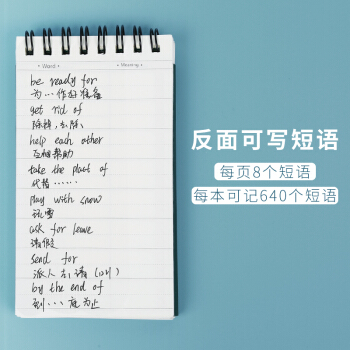 Word Meaning
be ready for
为…作好准备
get rid of
除掉,去除
help each other
互相帮助
take the place of
代替……
play with snow
玩雪
ask for leave
请假
send for
派人去请(叫)
by the end of
到…底为止
反面可写短语
每页8个短语
每本可记640个短语